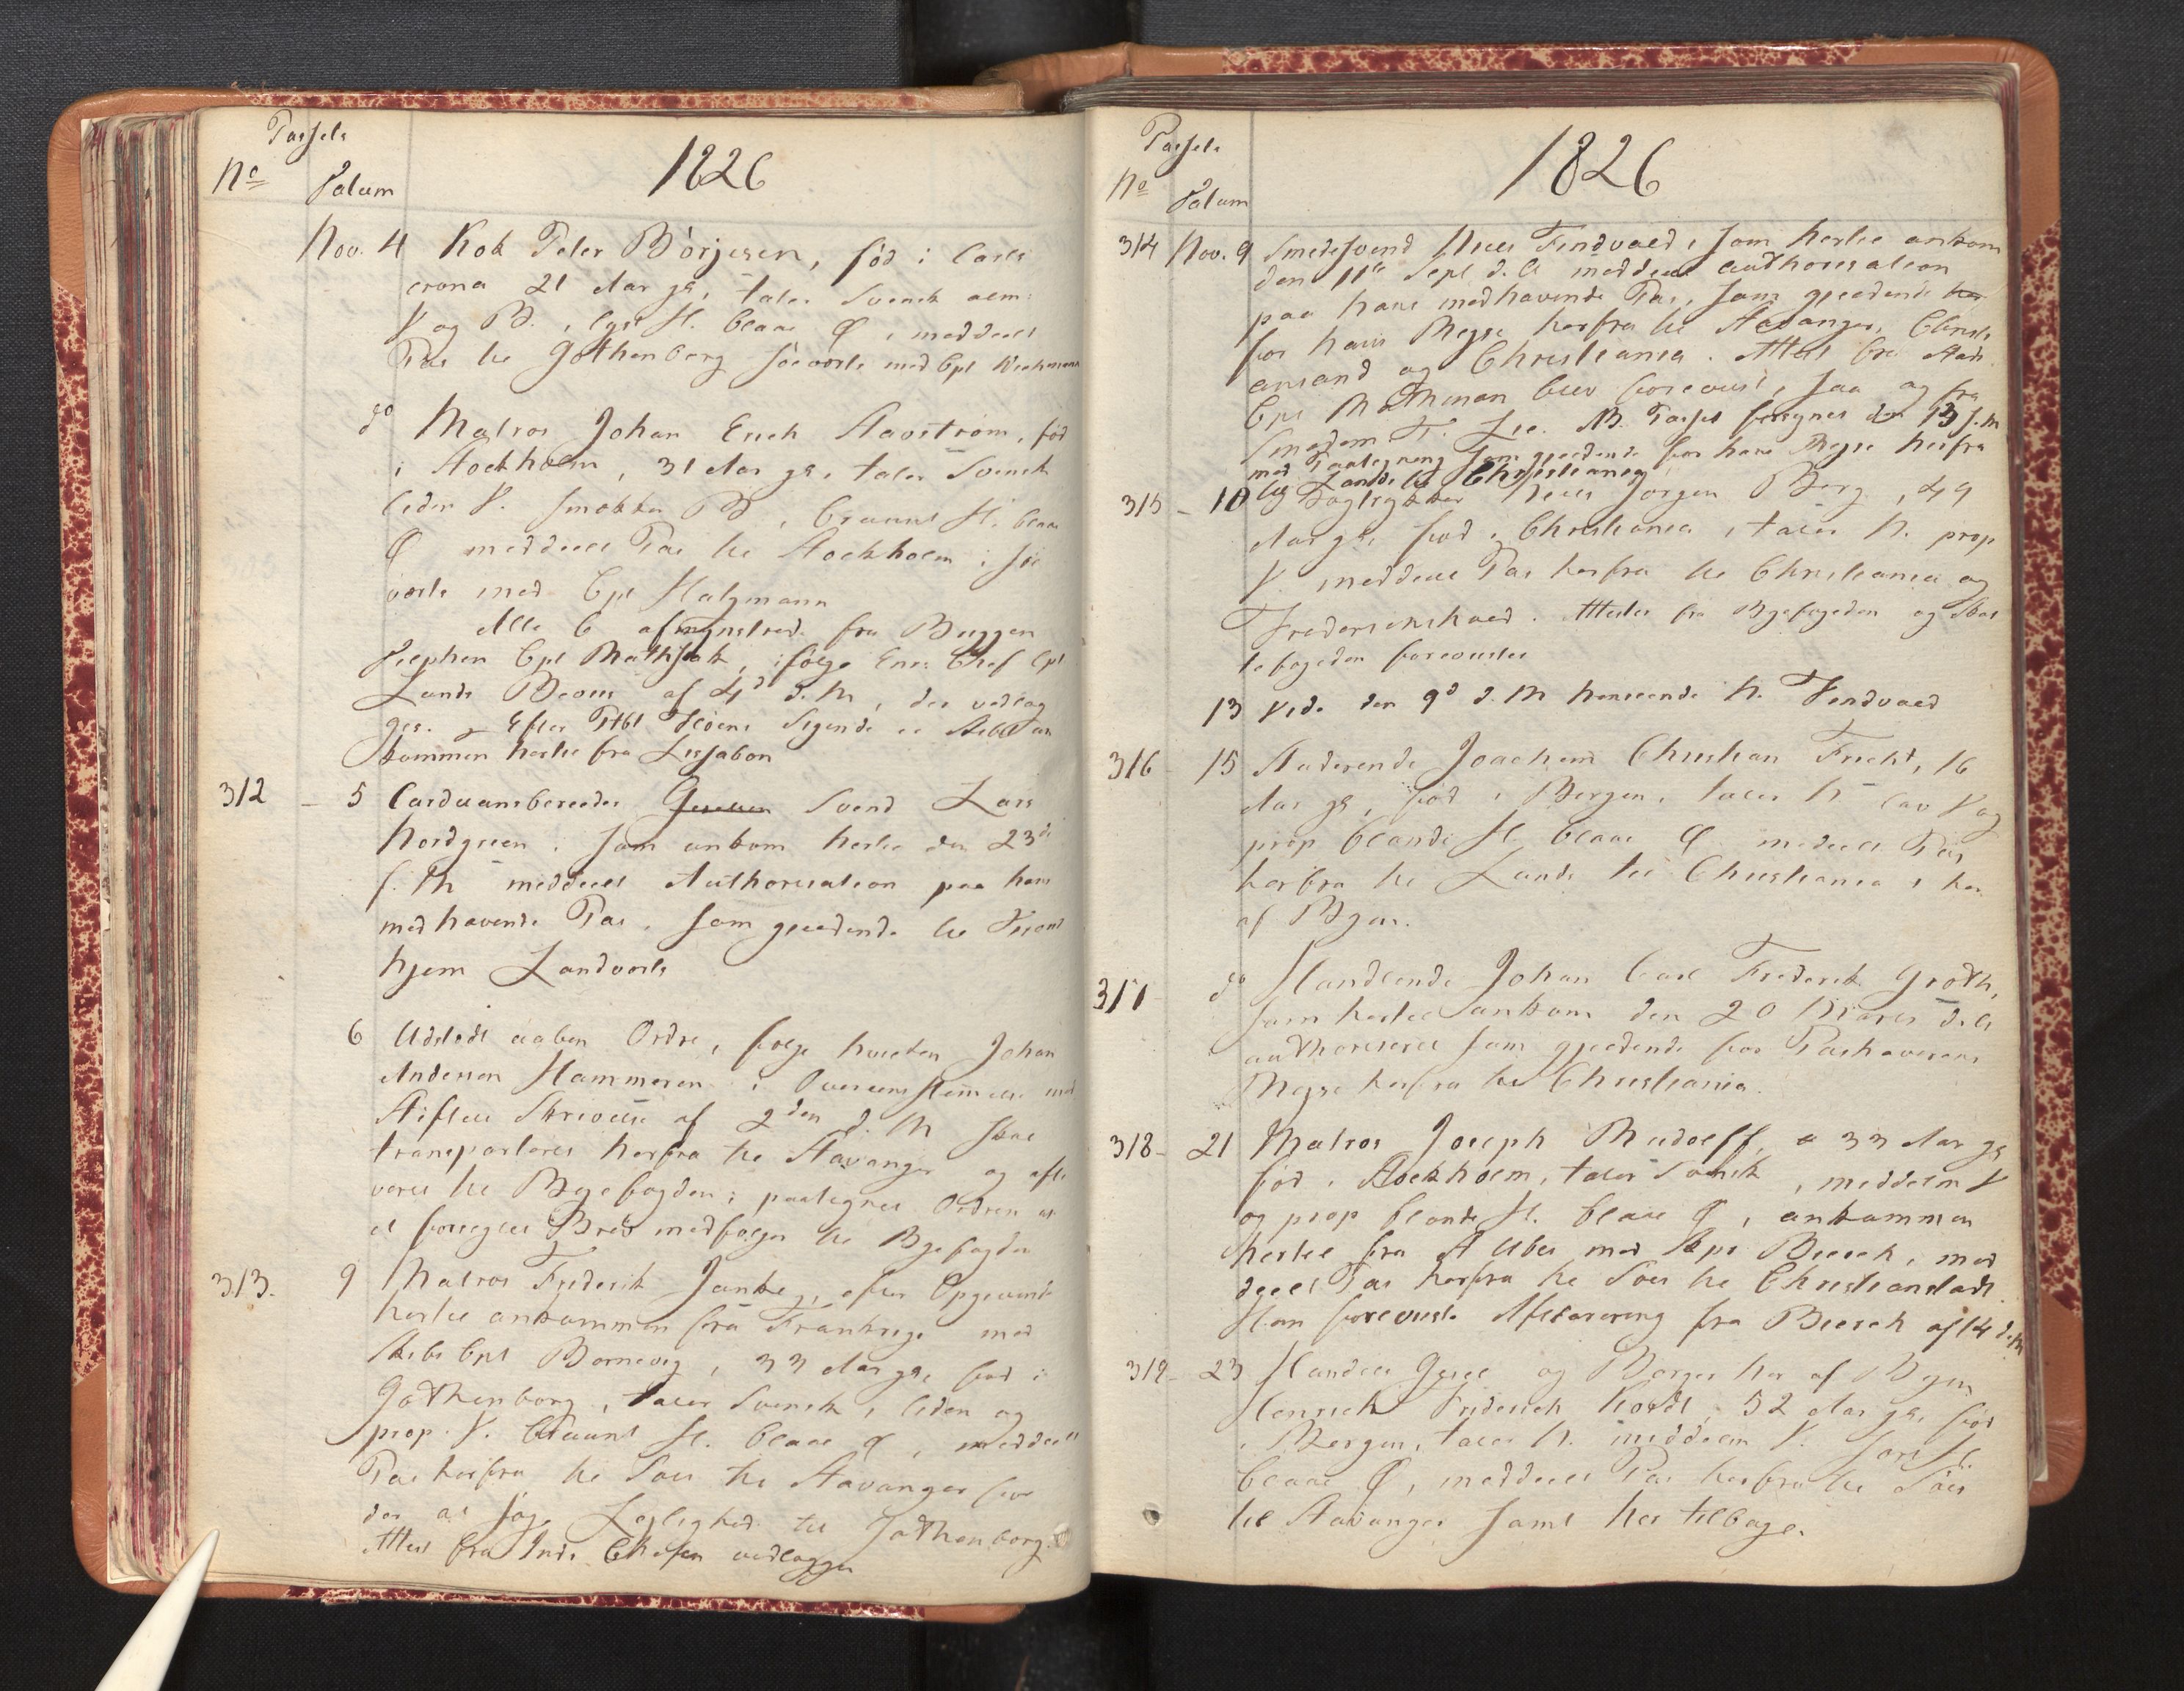 Passets
No Datum 1826
Nov. 4 Kok Peter Börjesen, fød i Carls
crona 21 Aar gl, taler Svensk alm:
V og B., lyst H. blaae Ø, meddeelt
Pas til Gøthenborg søeværts med Cpt Wichmann
do Matros Johan Erich Aaström, fød
i Stockholm, 31 Aar gl, taler Svensk
liden V. smækker B, bruunt H. blaae
Ø meddeelt Pas til Stockholm i søe
værts med Cpt Halzmann
Alle 6 afmynstrede fra Briggen
Delphin Cpt ifølge Cpt
Lunds Beviis af 4d d. M, der vedlag
ges. Efter Sigende er Skibet an
kommen hertil fra Lissabon
312 - 5 Carduansbereeder Svend Lars
Nordgreen, som ankom hertil den 23de
f. M meddeelt Authorisation paa hans
medhavende Pas, som gjeldende til Trond
hjem Landværts
6 Udstedt aaben Ordre, følge hvilken Johan
Andersen Hammeren i Overeensstemmelse med
Stiftets Skrivelse af 2den d. M skal
transporteres herfra til Stavanger og afle
veres til Byefogden; paategnet Ordren at
et forseglet Brev medfølger til Byefogden
313. 9 Matros Friderik Janke, efter Opgivende
hertil ankommen fra Frankrige med
Skibs Cpt Bornevig, 33 Aar gl, fød i
Gøthenborg, taler Svensk, liden og
prop V. bruunt H. blaae Ø, meddeelt
Pas herfra til Søes til Stavanger for
der at søge Leylighed til Gøthenborg.
Attest fra Inds Chefen vedlagger
Passets
No Datum 1826
314 Nov. 9 Smedesvend Niels Tindvald, som hertil ankom
den 11te Sept d. A meddeelt Authorisation
paa hans medhavende Pas, som gjeldende
for hans Reyse herfra til Stavanger, Christi
ansand og Christiania. Attest fra Stads
Cpt Mothman blev foreviist, saa og fra
Smedem. T. Lie. NB. Passet fornyet den 13 d. M
med Paategning som gjeldende for hans Reyse herfra
til Lands til Christiania
315 - 10 Niels Jørgen Berg, 49
Aar gl, fød i Christiania, taler N. prop
V. meddeelt Pas herfra til Christiania og
Frederikshald. Attester fra Byefogeden og Skat
tefogeden foreviister
13 Vide den 9d d. M henseende N. Tindvald
316 - 15 Studerende Joachim Christian Friehl, 16
Aar gl, fød i Bergen, taler N lav V og
prop blondt H blaae Ø meddeelt Pas
herfra til Lands til Christiania, her
af Byen.
317 do Handlende Johan Carl Frederik Groth,
som hertil ankom den 20 Marts d. A
authoriseret som gjeldende for Pashaverens
Reyse herfra til Christiania.
318 - 21 Matros Joseph Rudolff, 33 Aar gl
fød i Stockholm, taler Svensk, middelm V
og prop blondt H. blaae Ø, ankommen
hertil fra St Ubes med Skpr Beesch, med
deelt Pas herfra til Søes til Christianstadt
Han foreviiste Afskedigering fra Beesch af 14 d. M
319 - 23 Handels Gesel og Borger her af Byen
Henrich Friderich Kordt, 52 Aar gl, fød
i Bergen, taler N. middelm V. sort H.
blaae Ø, meddeelt Pas herfra til Søes
til Stavanger samt her tilbage.